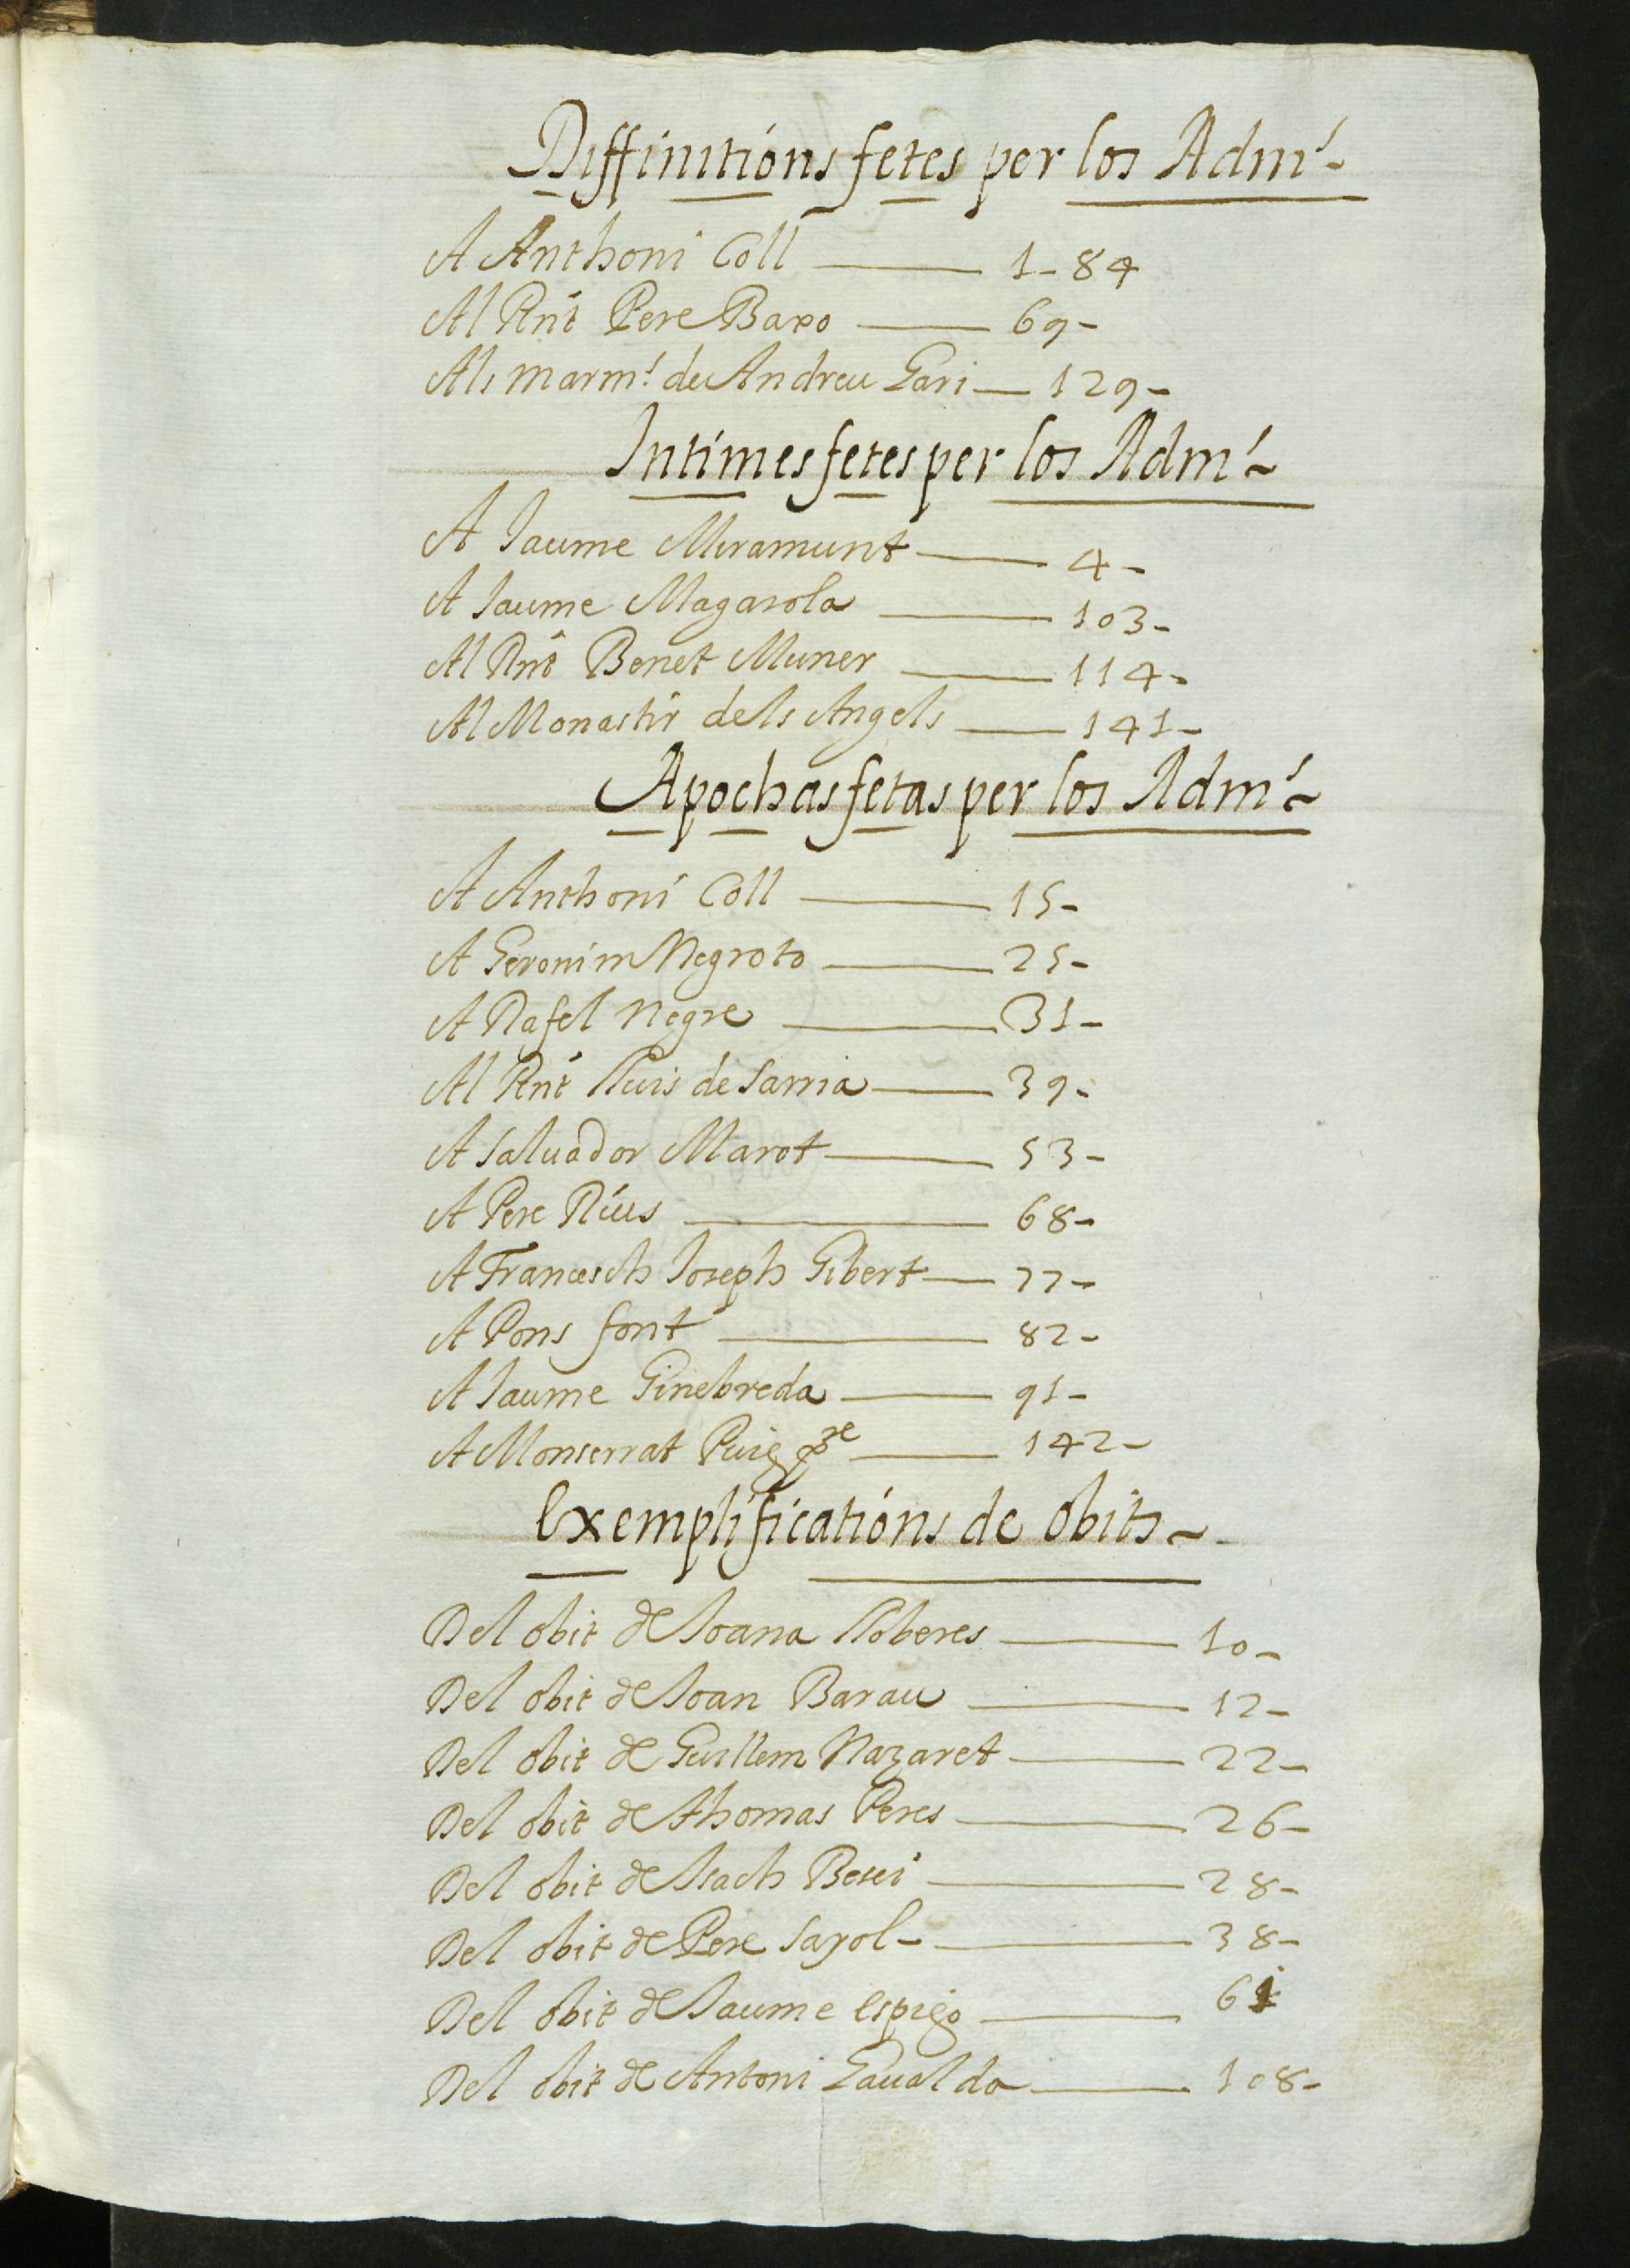 Diffinitións fetes per los Adm.ˢ ~
A Anthoni Coll —— 1 - 84
Al Rnt Pere Baxo —— 69 -
Als marm.ˢ de Andreu Gari — 129 -
Intimes fetes per los Adm.ˢ ~
A Jaume Miramunt —— 4 -
A Jaume Magarola —— 103 -
Al Rnt Benet Muner —— 114 -
Al Monastir dels Angels —— 141 -
Apochas fetas per los Adm.ˢ ~
A Anthoni Coll —— 15 -
A Geronim Negroto —— 25 -
A Rafel Negre —— 31 -
Al Rnt Lluis de Sarria —— 39 -
A Saluador Marot —— 53 -
A Pere Rius —— 68 -
A Francesch Joseph Gibert — 77 -
A Pons font —— 82 -
A Jaume Ginebreda —— 91 -
A Monserrat Puig pre —— 142 -
Exemplificatións de obits ~
Del obit de Joana Lloberes —— 10 -
Del obit de Joan Barau —— 12 -
Del obit de Guillem Nazaret —— 22 -
Del obit de Thomas Peres —— 26 -
Del obit de Isach —— 28 -
Del obit de Pere Sayol - —— 38 -
Del obit de Jaume Espigo —— 61
Del obit de Antoni Gaualda —— 108 -